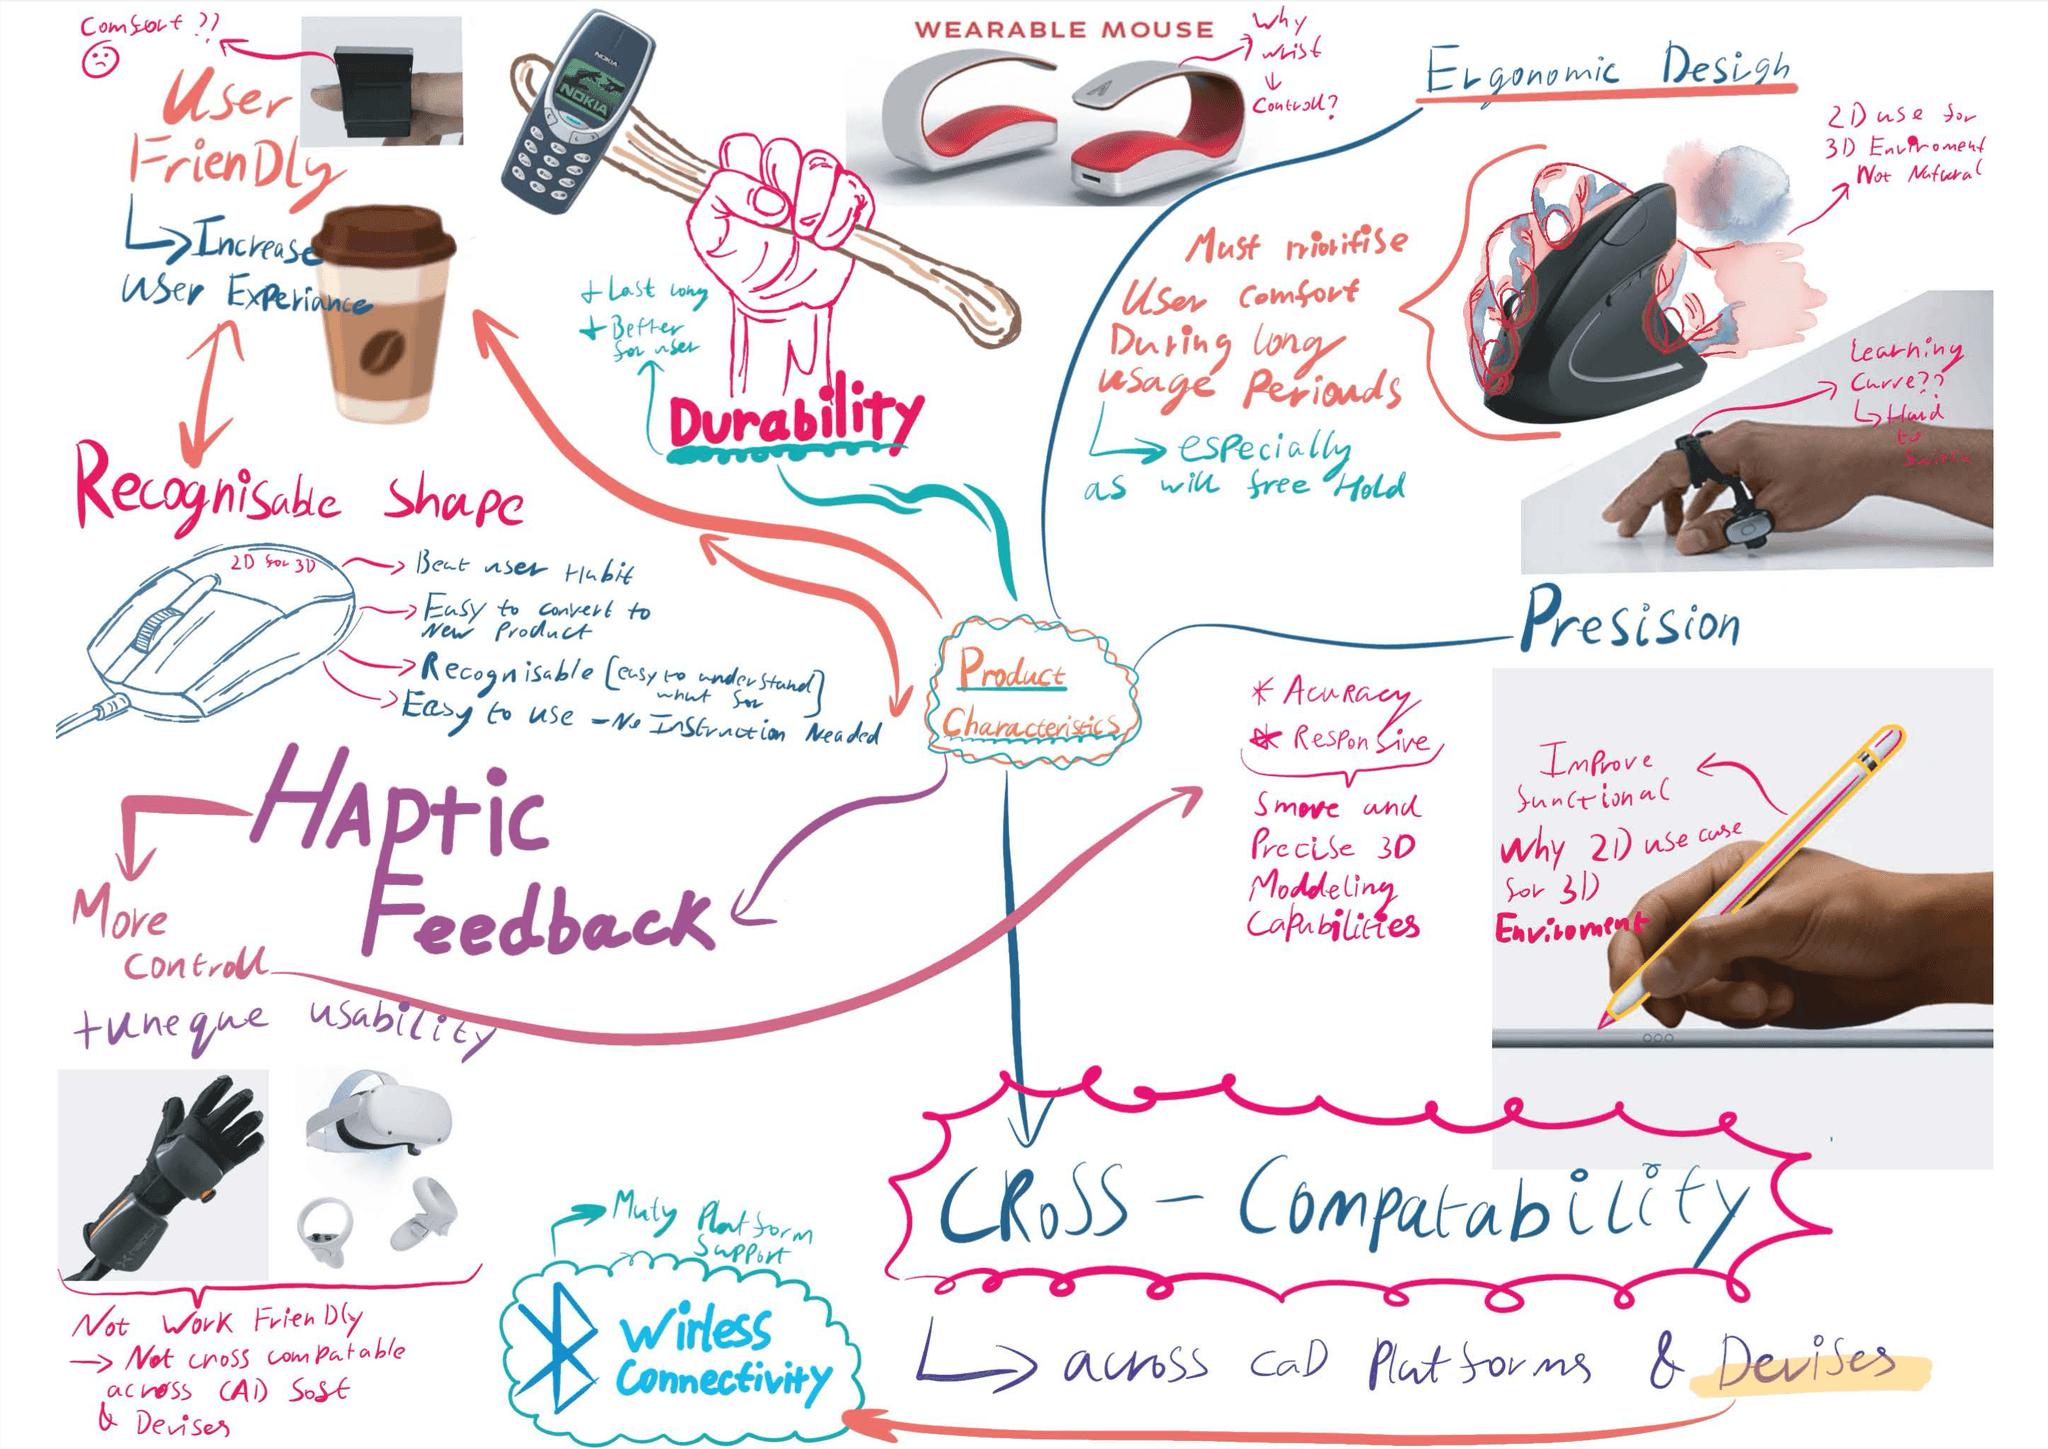 Comfort ??
User
FrienDly
Increase
user Experiance
Recognisable shape
2D for 3D
Beat user Habit
Easy to convert to
New Product
Recognisable [easy to understand]
what for
Easy to use - No Instruction Neaded
NOKIA
NOKIA
+ Last long
+ Better
for user
Durability
WEARABLE MOUSE
Why
wrist
Controll?
Ergonomic Design
2D use for
3D Enviroment
Not Natural
Must prioritise
User comfort
During long
usage Periouds
especially
as will free Hold
Learning
Curve??
Hard
to
Product
Characteristics
Presision
* Acuracy
* Responsive
Smove and
Precise 3D
Moddeling
Capabilities
Improve
functional
Why 2D use case
for 3D
Enviroment
Haptic
Feedback
More
controll
+uneque usability
Not Work FrienDly
Not cross compatable
across CAD Soft
& Devises
Multy Platform
Support
Wirless
Connectivity
CRoss - Compatability
across CaD Platforms & Devises